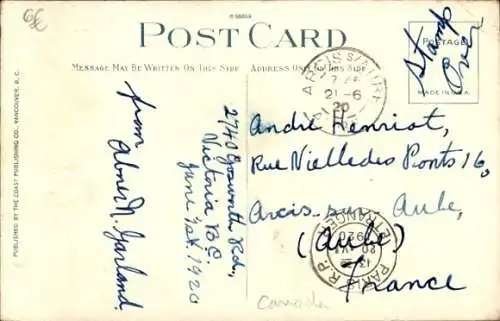 POST CARD
MESSAGE MAY BE WRITTEN ON THIS SIDE
ADDRESS ONLY
POSTAGE
MADE IN
Stamp
Over
ARCIS S/AUBE
21-6
20
AUBE
André Henriot,
Rue Vielledes Ponts 16,
Arcis-sur Aube,
(Aube)
France
PARIS R.P.
ETRANGER
1920
Canada
2740 Rd.,
Victoria B.C.
June 1st 1920
from
Abner N. Garland.
PUBLISHED BY THE COAST PUBLISHING CO., VANCOUVER, B.C.